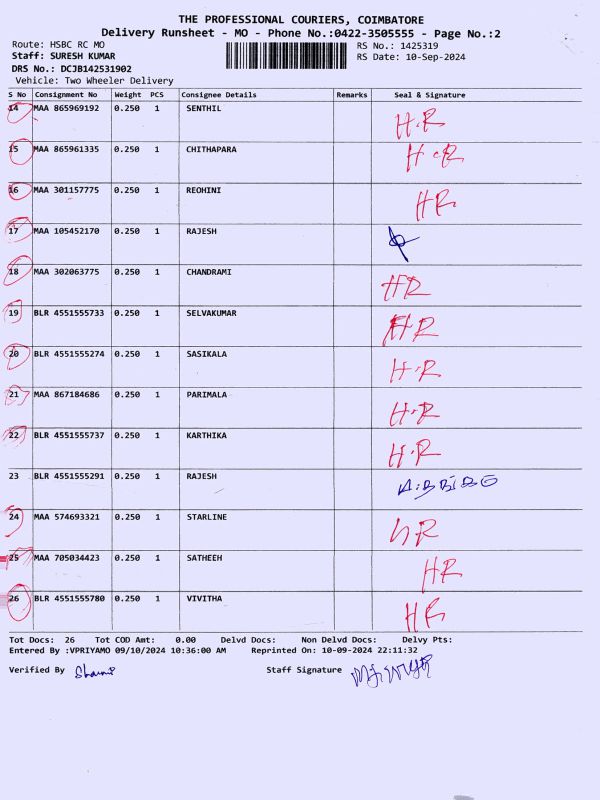 THE PROFESSIONAL COURIERS, COIMBATORE
Delivery Runsheet - MO - Phone No.:0422-3505555 - Page No.:2
Route: HSBC RC MO RS No.: 1425319
Staff: SURESH KUMAR RS Date: 10-Sep-2024
DRS No.: DCJB142531902
Vehicle: Two Wheeler Delivery
S No Consignment No Weight PCS Consignee Details Remarks Seal & Signature
14 MAA 865969192 0.250 1 SENTHIL H.R
15 MAA 865961335 0.250 1 CHITHAPARA H.R
16 MAA 301157775 0.250 1 REOHINI HR
17 MAA 105452170 0.250 1 RAJESH
18 MAA 302063775 0.250 1 CHANDRAMI HR
19 BLR 4551555733 0.250 1 SELVAKUMAR HR
20 BLR 4551555274 0.250 1 SASIKALA H.R
21 MAA 867184686 0.250 1 PARIMALA H.R
22 BLR 4551555737 0.250 1 KARTHIKA H.R
23 BLR 4551555291 0.250 1 RAJESH
24 MAA 574693321 0.250 1 STARLINE HR
25 MAA 705034423 0.250 1 SATHEEH HR
26 BLR 4551555780 0.250 1 VIVITHA HR
Tot Docs: 26 Tot COD Amt: 0.00 Delvd Docs: Non Delvd Docs: Delvy Pts:
Entered By :VPRIYAMO 09/10/2024 10:36:00 AM Reprinted On: 10-09-2024 22:11:32
Verified By Staff Signature